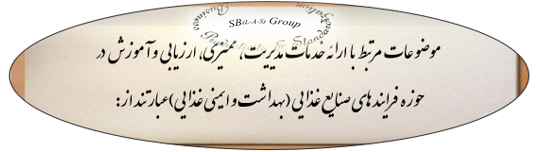 SB(L-A-S) Group
موضوعات مرتبط با ارائه خدمات مدیریت، ممیزی، ارزیابی و آموزش در
حوزه فرایندهای صنایع غذایی (بهداشت و ایمنی غذایی) عبارتند از: